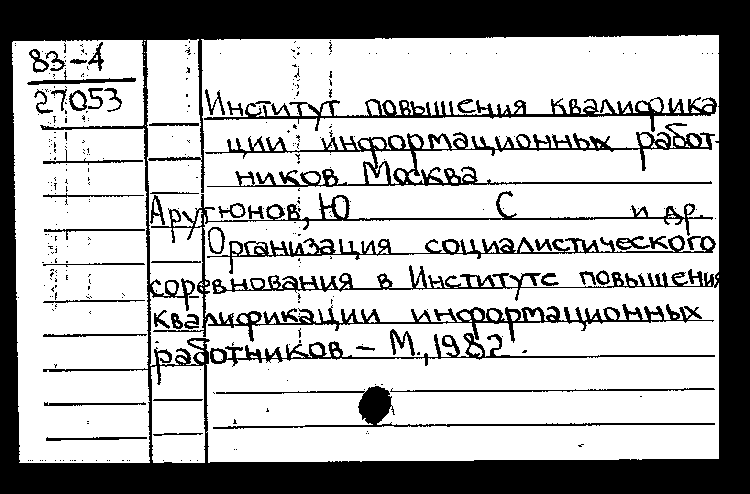 83-4
27053
Институт повышения квалифика
ции информационных работ-
ников. Москва.
Арутюнов, Ю С и др.
Организация социалистического
соревнования в Институте повышения
квалификации информационных
работников. - М., 1982.